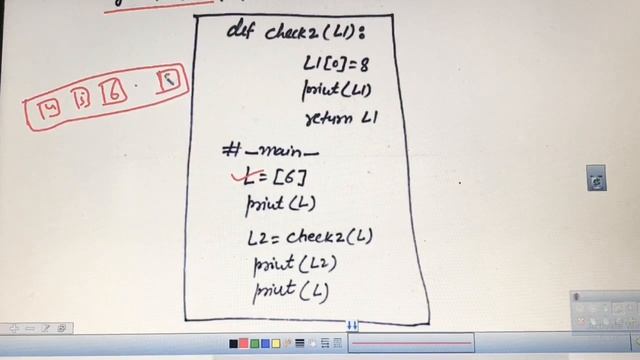 def check2(L1):
L1[0]=8
print(L1)
return L1
# _main_
L=[6]
print(L)
L2=check2(L)
print(L2)
print(L)
6